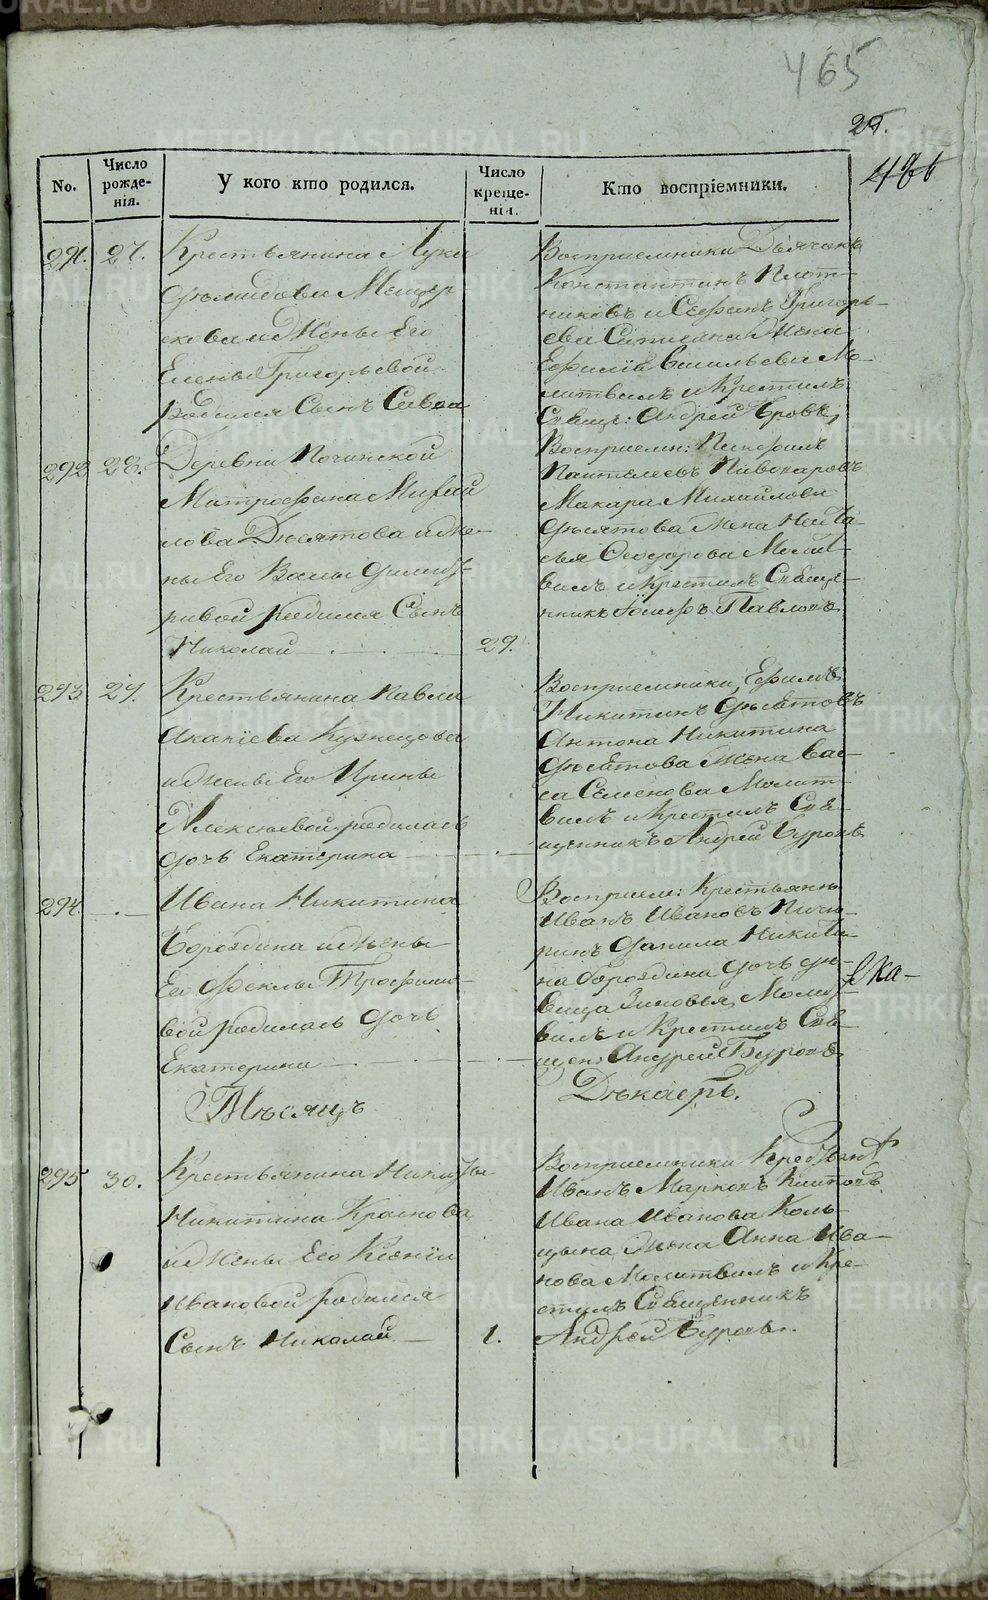 465
25.
No.
Число рожденія.
У кого кто родился.
Число крещенія.
Кто воспріемники.
291. 27.
Крестьянина Луки
Мещер
скова и Жены Его
Елены Григорьевой
Родился Сынъ Савва
Восприемники Дьячекъ
Константинъ Плот-
никовъ и Григорь-
ева Жена
Васильева Мо-
литвилъ и Крестилъ
Священ: Андрей
292 28.
Деревни Починской
Митрофана Михай
лова Дѣсятова и Же-
ны Его
родился Сынъ
Николай
29.
Восприемн: Панфилъ
Пантелеевъ Пивоваровъ
Макара Михайлова
Дѣсятова Жена Ната-
лья Феодорова Молит-
вилъ и Крестилъ Свяще-
нникъ Павловъ
293 29.
Крестьянина Павла
Акакіева Кузнецова
и Жены Его Ирины
Алексѣевой родилась
дочь Екатерина
Восприемники, Ефимъ
Никитинъ Дѣсятовъ
Антона Никитина
Дѣсятова Жена Вас-
са Семенова Молит-
вилъ и Крестилъ Свя-
щенникъ Андрей Буровъ
294.
Ивана Никитина
Бороздина и Жены
Его Феклы Трофимо-
вой родилась дочь
Екатерина
Восприем: Крестьянн
Иванъ Ивановъ Пичу-
ринъ Данила Никити-
на Бороздина дочь дѣ-
вица Зиновья, Молит-
вилъ и Крестилъ Свя-
щен: Андрей Буровъ
ѣка-
Мѣсяцъ
Дѣкабрь.
295 30.
Крестьянина Никиты
Никитина Краснова
и Жены Его Ксеніи
Ивановой родился
Сынъ Николай
1.
Восприемники
Иванъ Марковъ
Ивана Иванова Коль-
цына Жена Анна Ива-
нова Молитвилъ и Кре-
стилъ Священникъ
Андрей Буровъ.
METRIKI.GASO-URAL.RU